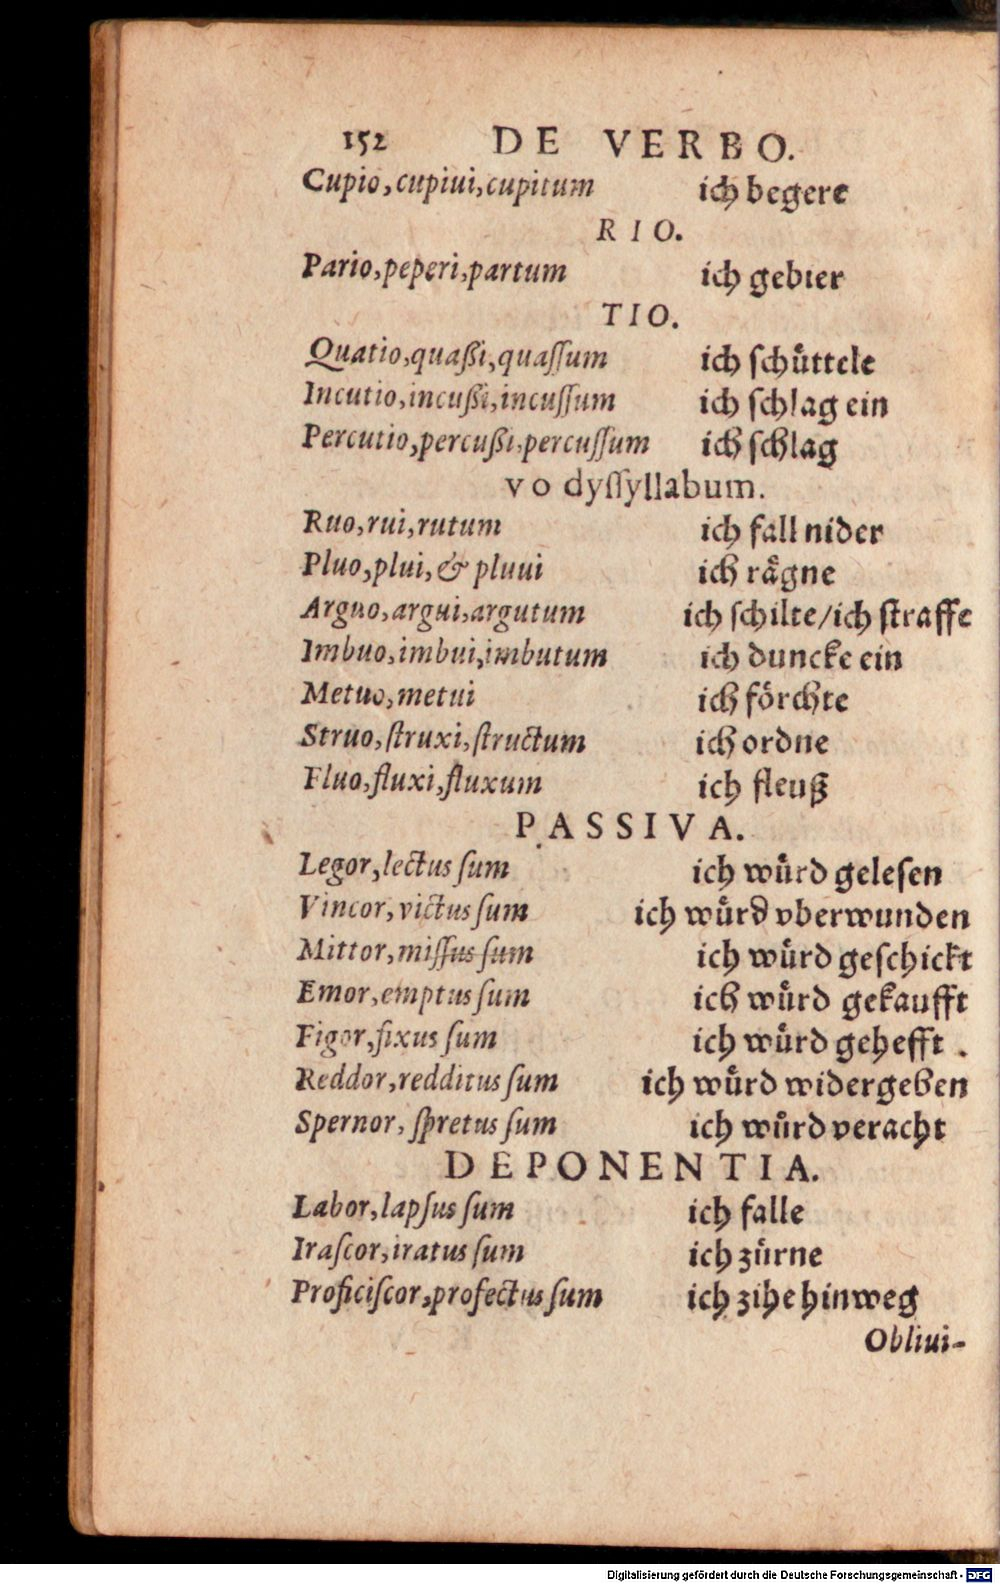 152 DE VERBO.
Cupio, cupiui, cupitum ich begere
RIO.
Pario, peperi, partum ich gebier
TIO.
Quatio, quaßi, quaſſum ich ſchuͤttele
Incutio, incußi, incuſſum ich ſchlag ein
Percutio, percußi, percuſſum ich ſchlag
vo dyſſyllabum.
Ruo, rui, rutum ich fall nider
Pluo, plui, & pluui ich raͤgne
Arguo, argui, argutum ich ſchilte/ich ſtraffe
Imbuo, imbui, imbutum ich duncke ein
Metuo, metui ich foͤrchte
Struo, ſtruxi, ſtructum ich ordne
Fluo, fluxi, fluxum ich fleuß
PASSIVA.
Legor, lectus ſum ich wuͤrd geleſen
Vincor, victus ſum ich wuͤrd vberwunden
Mittor, miſſus ſum ich wuͤrd geſchickt
Emor, emptus ſum ich wuͤrd gekaufft
Figor, fixus ſum ich wuͤrd gehefft.
Reddor, redditus ſum ich wuͤrd widergeben
Spernor, ſpretus ſum ich wuͤrd veracht
DEPONENTIA.
Labor, lapſus ſum ich falle
Iraſcor, iratus ſum ich zuͤrne
Proficiſcor, profectus ſum ich zihe hinweg
Obliui-
Digitalisierung gefördert durch die Deutsche Forschungsgemeinschaft - DFG